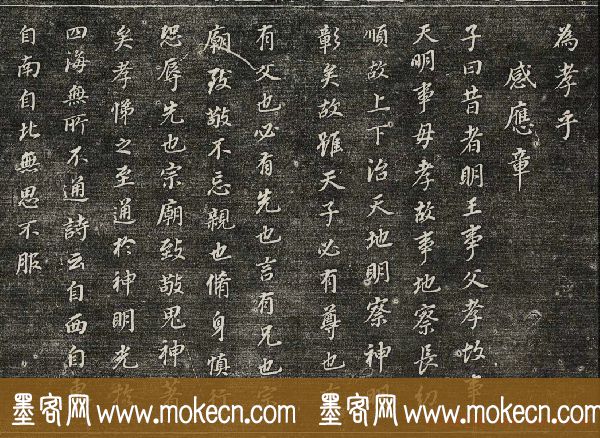 為孝乎
感應章
子曰昔者明王事父孝故事
天明事母孝故事地察長幼
順故上下治天地明察神明
彰矣故雖天子必有尊也言
有父也必有先也言有兄也宗
廟致敬不忘親也脩身慎行
恐辱先也宗廟致敬鬼神著
矣孝悌之至通於神明光於
四海無所不通詩云自西自東
自南自北無思不服
墨客网 www.mokecn.com 墨客网 www.mokecn.com